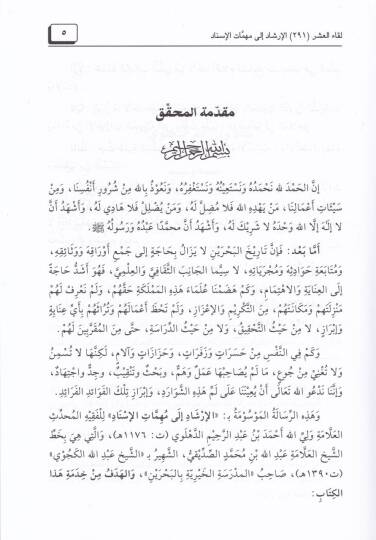 لقاء العشر (٢٩١) الإرشاد إلى مهمّات الإسناد
٥
مقدّمة المحقّق
بسم الله الرحمن الرحيم
إنَّ الحَمْدَ لله نَحْمَدُهُ وَنَسْتَعِينُهُ وَنَسْتَغْفِرُهُ، وَنَعُوْذُ بِالله مِنْ شُرورِ أَنْفُسِنَا، وَمِنْ
سَيِّئَاتِ أَعْمَالِنَا، مَنْ يَهْدِهِ الله فَلَا مُضِلَّ لَهُ، وَمَنْ يُضْلِلْ فَلَا هَادِيَ لَهُ، وَأَشْهَدُ أَنْ
لا إلَهَ إلَّا الله وَحْدَهُ لا شَرِيْكَ لَهُ، وَأَشْهَدُ أَنَّ محمَّدًا عَبْدُهُ وَرَسُولُهُ ﷺ.
أَمَّا بَعْد: فَإِنَّ تَارِيْخَ البَحْرَيْنِ لَا يَزَالُ بِحَاجَةٍ إلى جَمْعِ أَوْرَاقِهِ وَوَثَائِقِهِ،
وَمُتَابَعَةِ حَوَادِثِهِ وَمُجْرَيَاتِهِ، لَا سِيَّما الجَانِبَ الثَّقَافِيَّ وَالعِلْمِيَّ، فَهُوَ أَشَدُّ حَاجَةً
إلى العِنَايَةِ وَالاهْتِمَامِ، وَكَمْ هَضَمْنَا عُلَمَاءَ هَذِهِ المَمْلَكَةِ حَقَّهُمْ، وَلَمْ نَعْرِفْ لَهُمْ
مَنْزِلَتَهُمْ وَمَكَانَتَهُمْ، مِنَ التَّكْرِيمِ وَالإِعْزَازِ، وَلَمْ تَحْظَ أَعْمَالُهُمْ وَتُرَاثُهُمْ بِأَيِّ عِنَايَةٍ
وَإِبْرَازٍ، لَا مِنْ حَيْثُ التَّحْقِيقُ، وَلَا مِنْ حَيْثُ الدِّرَاسَةِ، حَتَّى مِنَ المُقَرَّبِينَ لَهُمْ.
وَكَمْ فِي النَّفْسِ مِنْ حَسَرَاتٍ وَزَفَرَاتٍ، وَحَزَازَاتٍ وَآلامٍ، لَكِنَّهَا لَا تُسْمِنُ
وَلَا تُغْنِي مِنْ جُوعٍ، مَا لَمْ يُصَاحِبْهَا عَمَلٌ وَهَمٌّ، وَبَحْثٌ وَتَنْقِيْبٌ، وَجِدٌّ وَاجْتِهَادٌ،
وَإِنَّنَا نَدْعُو الله تَعَالَى أَنْ يُعِيْنَنَا عَلَى لَمِّ هَذِهِ الشَّوَارِدِ، وَإِبْرَازِ تِلْكَ الفَوَائِدِ الفَرَائِدِ.
وَهَذِهِ الرِّسَالَةُ المَوْسُوْمَةُ بـ: «الإِرْشَادِ إِلَى مُهِمَّاتِ الإِسْنَادِ» لِلْفَقِيْهِ المُحَدِّثِ
العَلَّامَةِ وَلِيِّ الله أَحْمَدَ بْنِ عَبْدِ الرَّحِيْمِ الدِّهْلَوِي (ت: ١١٧٦هـ)، وَالَّتِي هِيَ بِخَطِّ
الشَّيْخِ العَلَّامَةِ عَبْدِ الله بْنِ مُحَمَّدٍ الصِّدِّيْقِيِّ، الشَّهِيْرِ بـ «الشَّيْخِ عَبْدِ الله الكَجُوْي»
(ت ١٣٩٠هـ)، صَاحِبِ «المَدْرَسَةِ الخَيْرِيَّةِ بِالبَحْرَيْنِ»، وَالهَدَفُ مِنْ خِدْمَةِ هَذَا
الكِتَابِ: